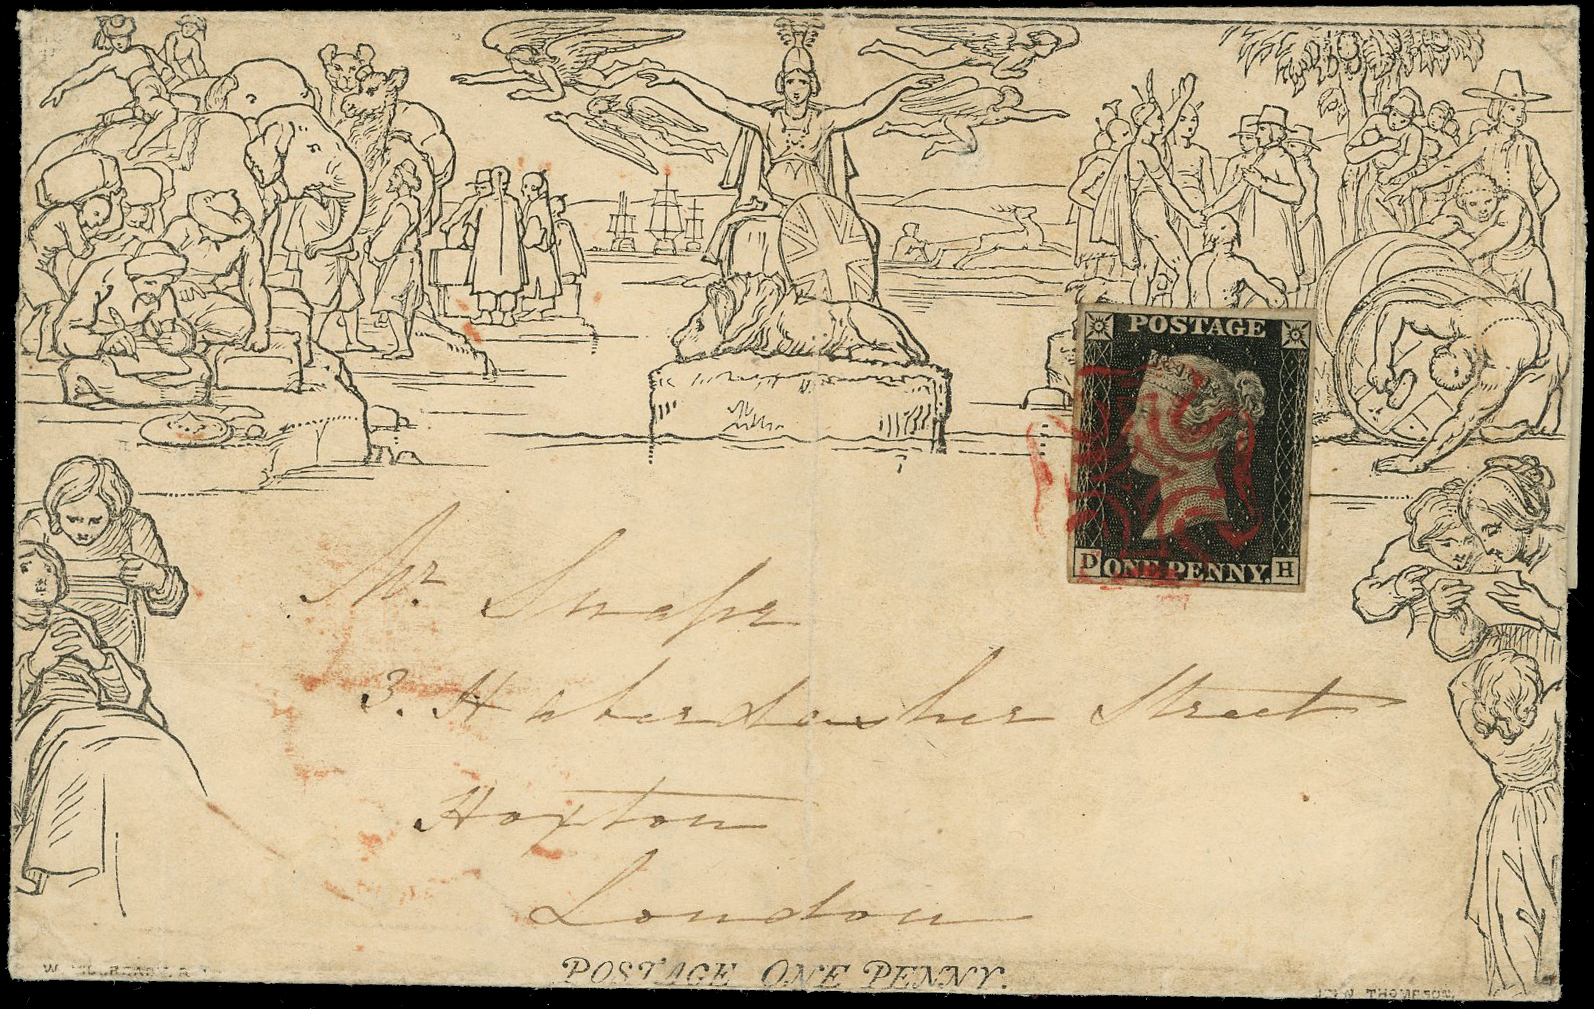 POSTAGE
D ONE PENNY. H
Mr. Snape
3. Haberdasher Street
Hoxton
London
POSTAGE ONE PENNY.
JOHN THOMPSON